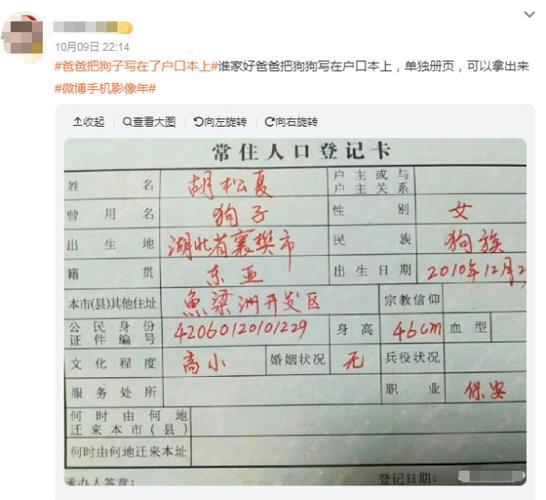 10月09日 22:14
#爸爸把狗子写在了户口本上#谁家好爸爸把狗狗写在户口本上，单独册页，可以拿出来
#微博手机影像年#
收起 查看大图 向左旋转 向右旋转
常住人口登记卡
姓名 胡松夏 户主或与户主关系
曾用名 狗子 性别 女
出生地 湖北省襄樊市 民族 狗族
籍贯 东亚 出生日期 2010年12月2
本市(县)其他住址 鱼梁洲开发区 宗教信仰
公民身份证件编号 42060120101229 身高 46cm 血型
文化程度 高小 婚姻状况 无 兵役状况
服务处所 职业 保安
何时由何地迁来本市(县)
何时由何地迁来本址
承办人签章: 登记日期: